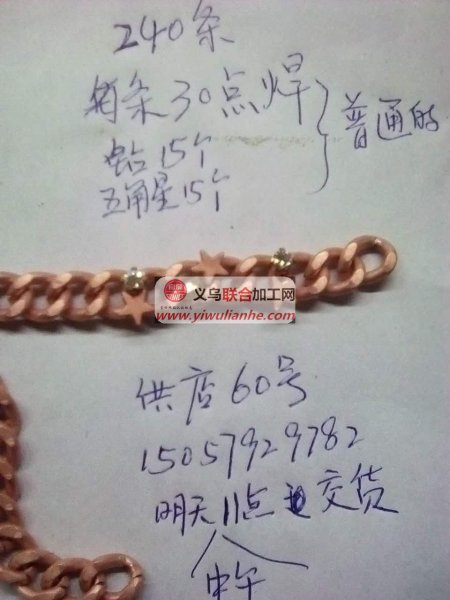 240条
每条30点焊
普通的
钻15个
五角星15个
义乌联合加工网
www.yiwulianhe.com
供店60号
15057929782
明天11点交货
中午